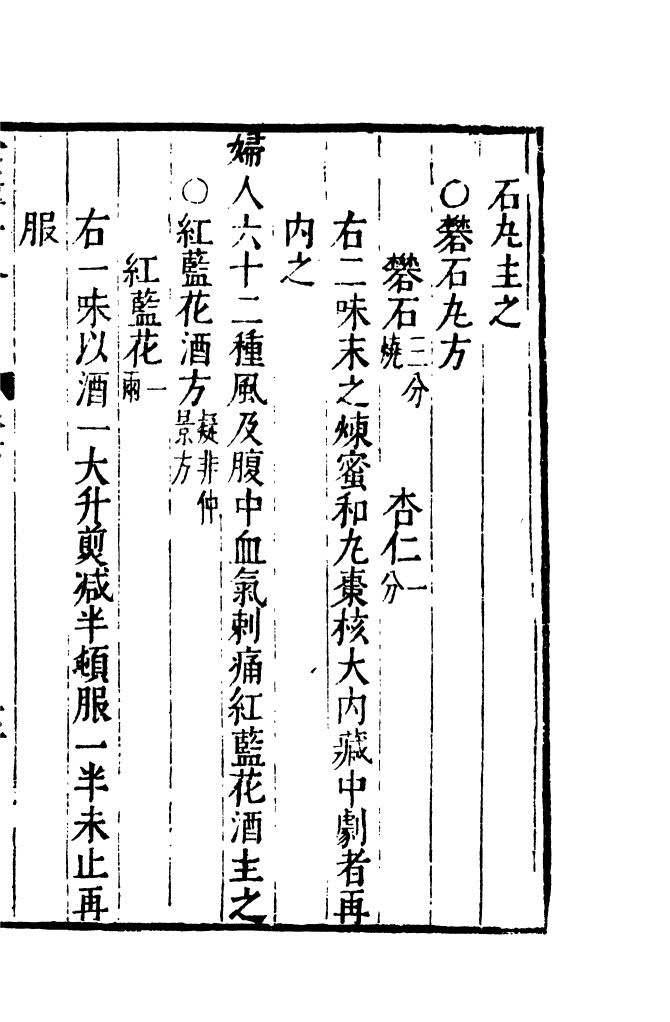 石丸主之
○礬石丸方
礬石三分燒　杏仁一分
右二味末之煉蜜和丸棗核大內藏中劇者再
內之
婦人六十二種風及腹中血氣刺痛紅藍花酒主之
○紅藍花酒方疑非仲景方
紅藍花一兩
右一味以酒一大升煎減半頓服一半未止再
服